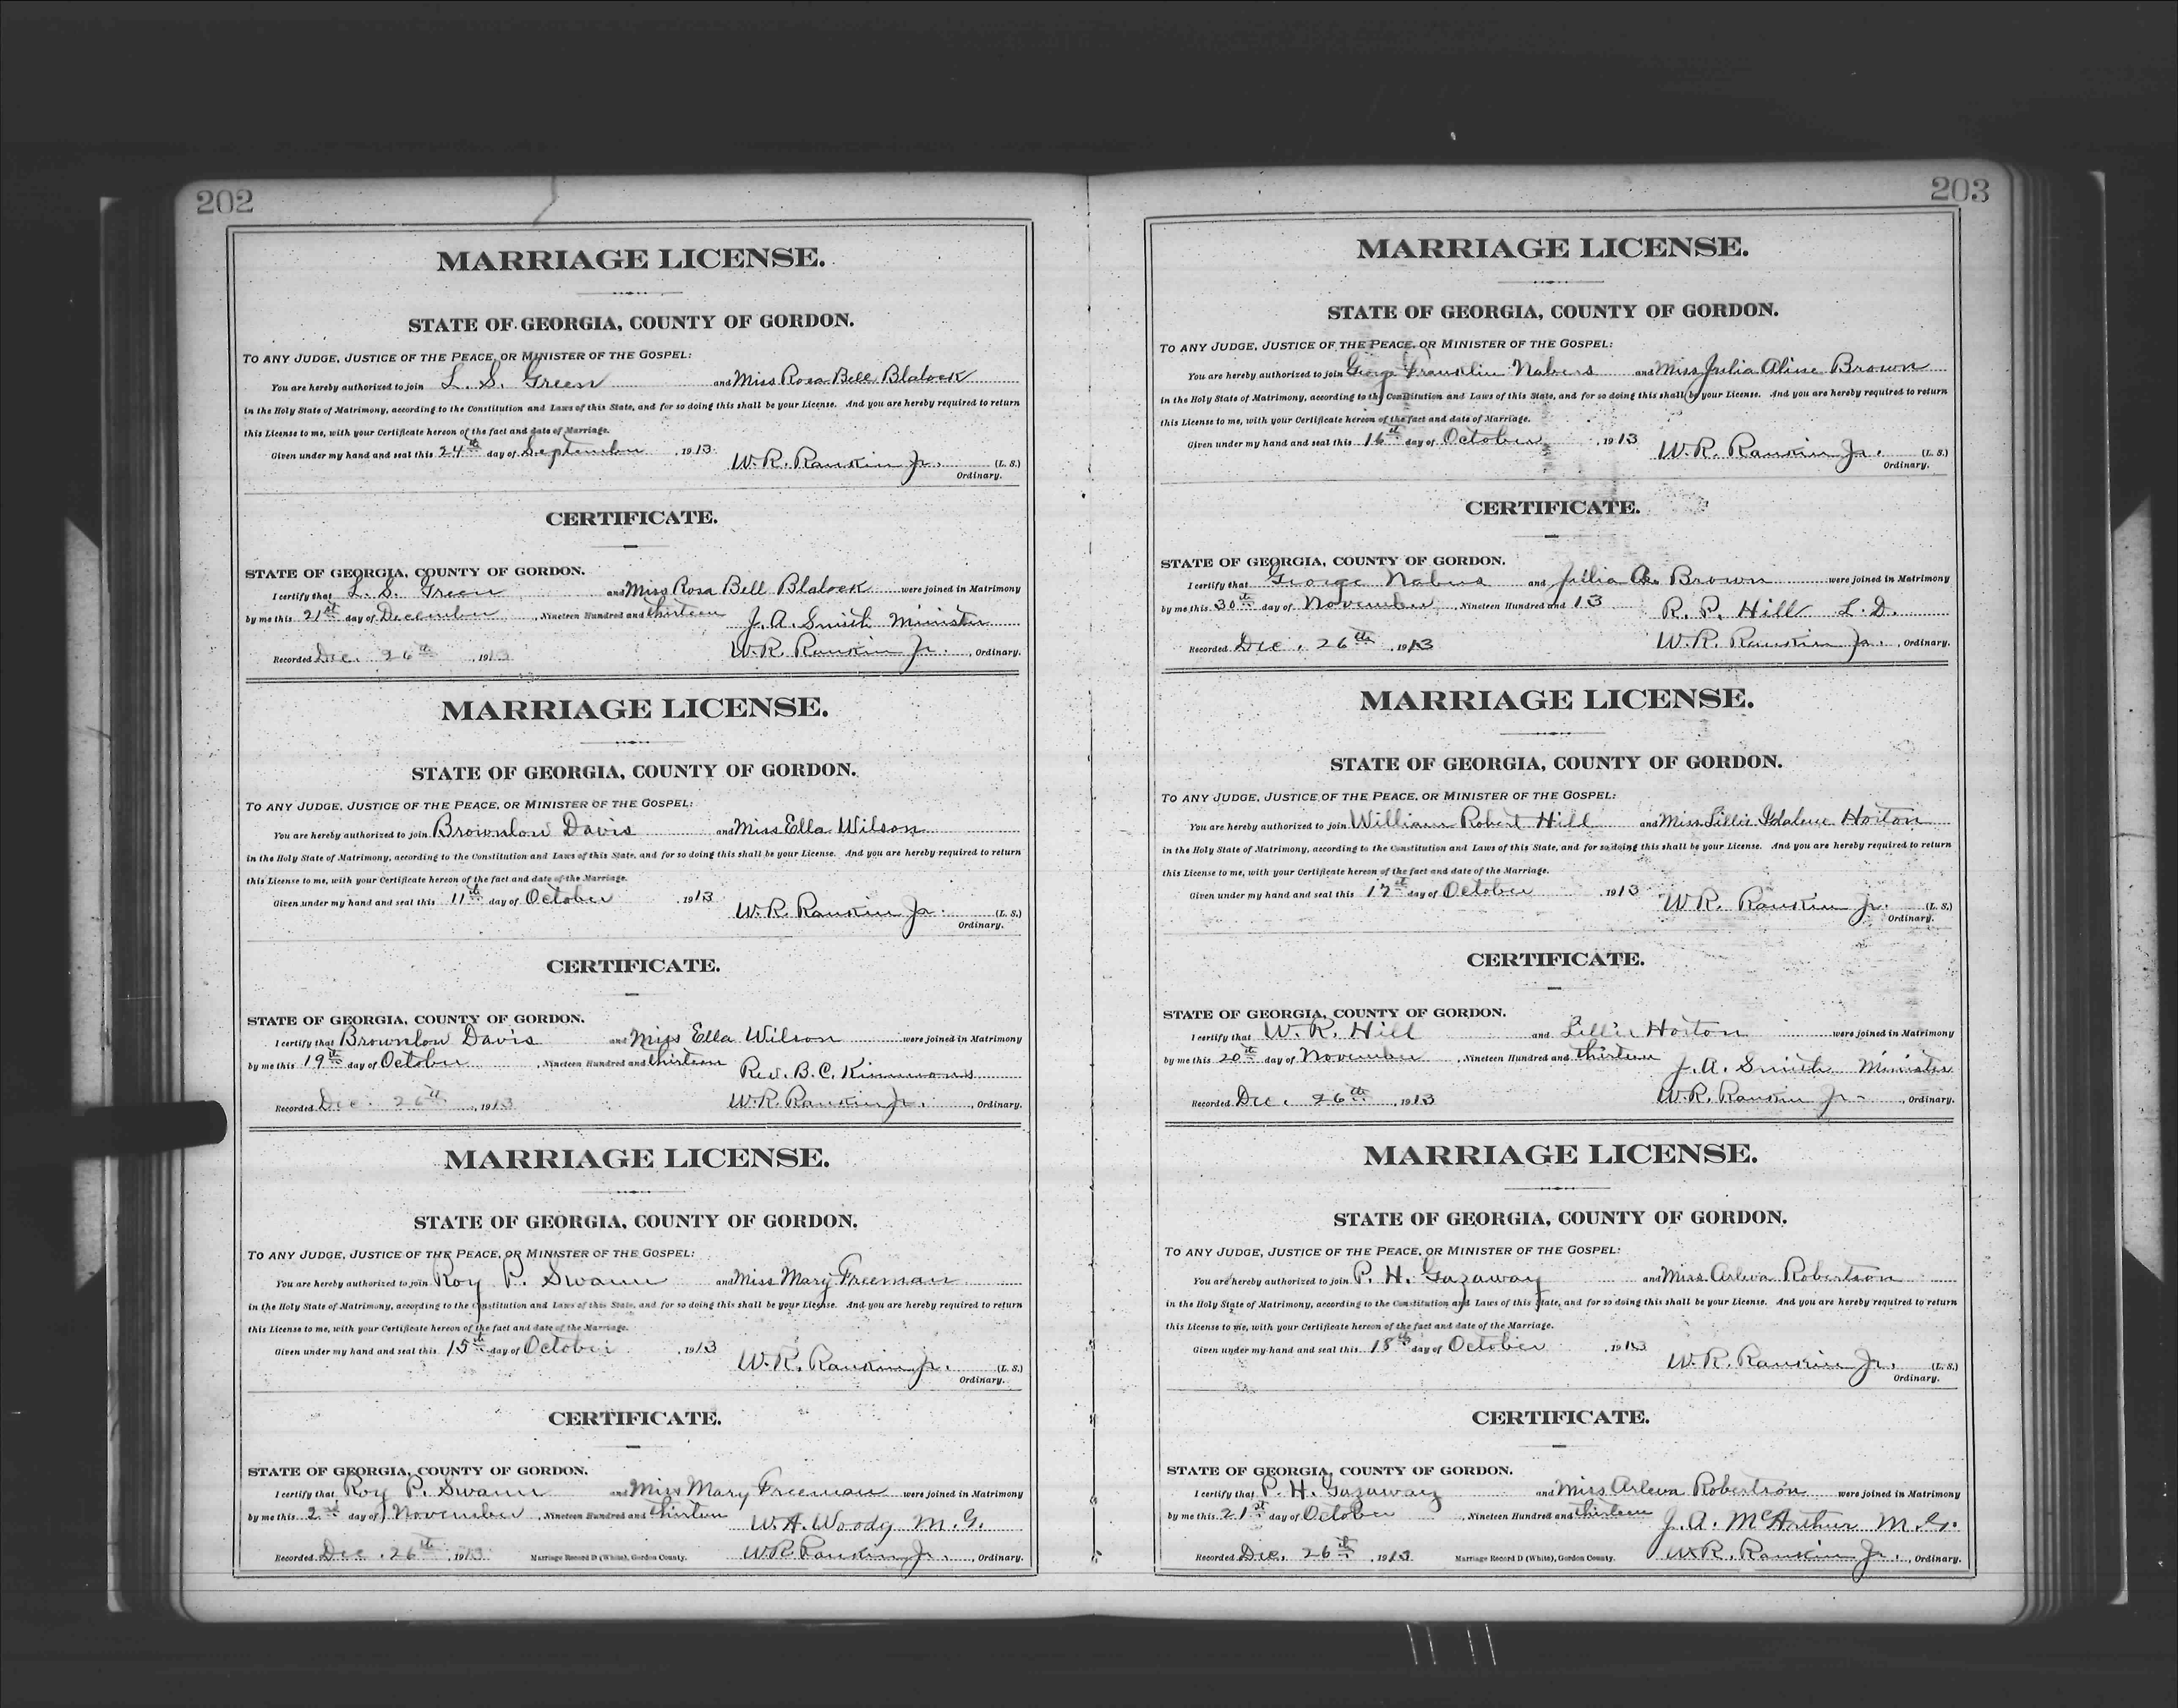 202
MARRIAGE LICENSE.
STATE OF GEORGIA, COUNTY OF GORDON.
TO ANY JUDGE, JUSTICE OF THE PEACE, OR MINISTER OF THE GOSPEL:
You are hereby authorized to join L. S. Green and Miss Rosa Bell Blalock
in the Holy State of Matrimony, according to the Constitution and Laws of this State, and for so doing this shall be your License. And you are hereby required to return
this License to me, with your Certificate hereon of the fact and date of Marriage.
Given under my hand and seal this 24th day of September, 1913.
W. R. Rankin Jr. (L. S.)
Ordinary.
CERTIFICATE.
STATE OF GEORGIA, COUNTY OF GORDON.
I certify that L. S. Green and Miss Rosa Bell Blalock were joined in Matrimony
by me this 21st day of December, Nineteen Hundred and thirteen J. A. Smith Minister
Recorded Dec. 26th, 1913 W. R. Rankin Jr., Ordinary.
MARRIAGE LICENSE.
STATE OF GEORGIA, COUNTY OF GORDON.
TO ANY JUDGE, JUSTICE OF THE PEACE, OR MINISTER OF THE GOSPEL:
You are hereby authorized to join Brownlow Davis and Miss Ella Wilson
in the Holy State of Matrimony, according to the Constitution and Laws of this State, and for so doing this shall be your License. And you are hereby required to return
this License to me, with your Certificate hereon of the fact and date of the Marriage.
Given under my hand and seal this 11th day of October, 1913
W. R. Rankin Jr. (L. S.)
Ordinary.
CERTIFICATE.
STATE OF GEORGIA, COUNTY OF GORDON.
I certify that Brownlow Davis and Miss Ella Wilson were joined in Matrimony
by me this 19th day of October, Nineteen Hundred and thirteen Rev. B. C. Kimmons
Recorded Dec. 26th, 1913 W. R. Rankin Jr., Ordinary.
MARRIAGE LICENSE.
STATE OF GEORGIA, COUNTY OF GORDON.
TO ANY JUDGE, JUSTICE OF THE PEACE, OR MINISTER OF THE GOSPEL:
You are hereby authorized to join Roy P. Swann and Miss Mary Freeman
in the Holy State of Matrimony, according to the Constitution and Laws of this State, and for so doing this shall be your License. And you are hereby required to return
this License to me, with your Certificate hereon of the fact and date of the Marriage.
Given under my hand and seal this 15th day of October, 1913
W. R. Rankin Jr. (L. S.)
Ordinary.
CERTIFICATE.
STATE OF GEORGIA, COUNTY OF GORDON.
I certify that Roy P. Swann and Miss Mary Freeman were joined in Matrimony
by me this 2nd day of November, Nineteen Hundred and thirteen W. A. Woody M. G.
Recorded Dec. 26th, 1913 Marriage Record D (White), Gordon County. W R Rankin Jr., Ordinary.
203
MARRIAGE LICENSE.
STATE OF GEORGIA, COUNTY OF GORDON.
TO ANY JUDGE, JUSTICE OF THE PEACE, OR MINISTER OF THE GOSPEL:
You are hereby authorized to join George Franklin Nabers and Miss Julia Aline Brown
in the Holy State of Matrimony, according to the Constitution and Laws of this State, and for so doing this shall be your License. And you are hereby required to return
this License to me, with your Certificate hereon of the fact and date of the Marriage.
Given under my hand and seal this 16th day of October, 1913
W. R. Rankin Jr. (L. S.)
Ordinary.
CERTIFICATE.
STATE OF GEORGIA, COUNTY OF GORDON.
I certify that George Nabers and Jullia A. Brown were joined in Matrimony
by me this 30th day of November, Nineteen Hundred and 13 R. P. Hill L. D.
Recorded Dec. 26th, 1913 W. R. Rankin Jr., Ordinary.
MARRIAGE LICENSE.
STATE OF GEORGIA, COUNTY OF GORDON.
TO ANY JUDGE, JUSTICE OF THE PEACE, OR MINISTER OF THE GOSPEL:
You are hereby authorized to join William Robert Hill and Miss Lillie Idalene Horton
in the Holy State of Matrimony, according to the Constitution and Laws of this State, and for so doing this shall be your License. And you are hereby required to return
this License to me, with your Certificate hereon of the fact and date of the Marriage.
Given under my hand and seal this 17th day of October, 1913
W. R. Rankin Jr. (L. S.)
Ordinary.
CERTIFICATE.
STATE OF GEORGIA, COUNTY OF GORDON.
I certify that W. R. Hill and Lillie Horton were joined in Matrimony
by me this 20th day of November, Nineteen Hundred and thirteen J. A. Smith Minister
Recorded Dec. 26th, 1913 W. R. Rankin Jr., Ordinary.
MARRIAGE LICENSE.
STATE OF GEORGIA, COUNTY OF GORDON.
TO ANY JUDGE, JUSTICE OF THE PEACE, OR MINISTER OF THE GOSPEL:
You are hereby authorized to join P. H. Gazaway and Miss Arleva Robertson
in the Holy State of Matrimony, according to the Constitution and Laws of this State, and for so doing this shall be your License. And you are hereby required to return
this License to me, with your Certificate hereon of the fact and date of the Marriage.
Given under my hand and seal this 18th day of October, 1913
W. R. Rankin Jr. (L. S.)
Ordinary.
CERTIFICATE.
STATE OF GEORGIA, COUNTY OF GORDON.
I certify that P. H. Gazaway and Miss Arleva Robertson were joined in Matrimony
by me this 21st day of October, Nineteen Hundred and thirteen J. A. McArthur M. G.
Recorded Dec. 26th, 1913 Marriage Record D (White), Gordon County. W R. Rankin Jr., Ordinary.